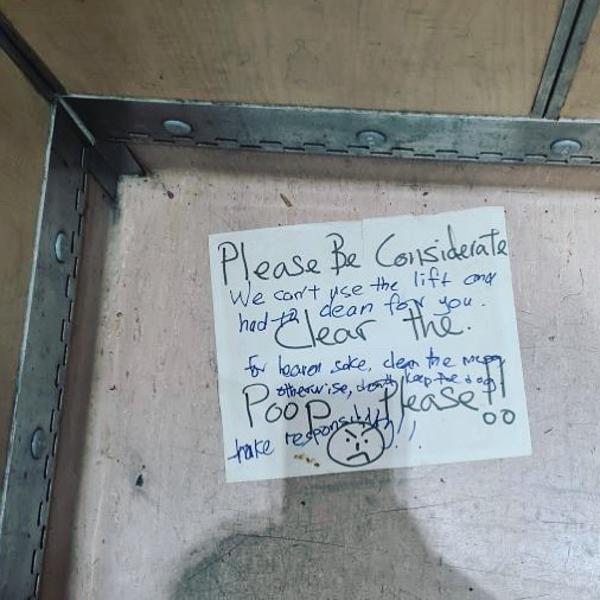 Please Be Considerate
We can't use the lift and
had to clean for you.
Clear the.
for heaven sake, clean the
otherwise, don't keep the dog
Poop Please!!
take responsibility!!!